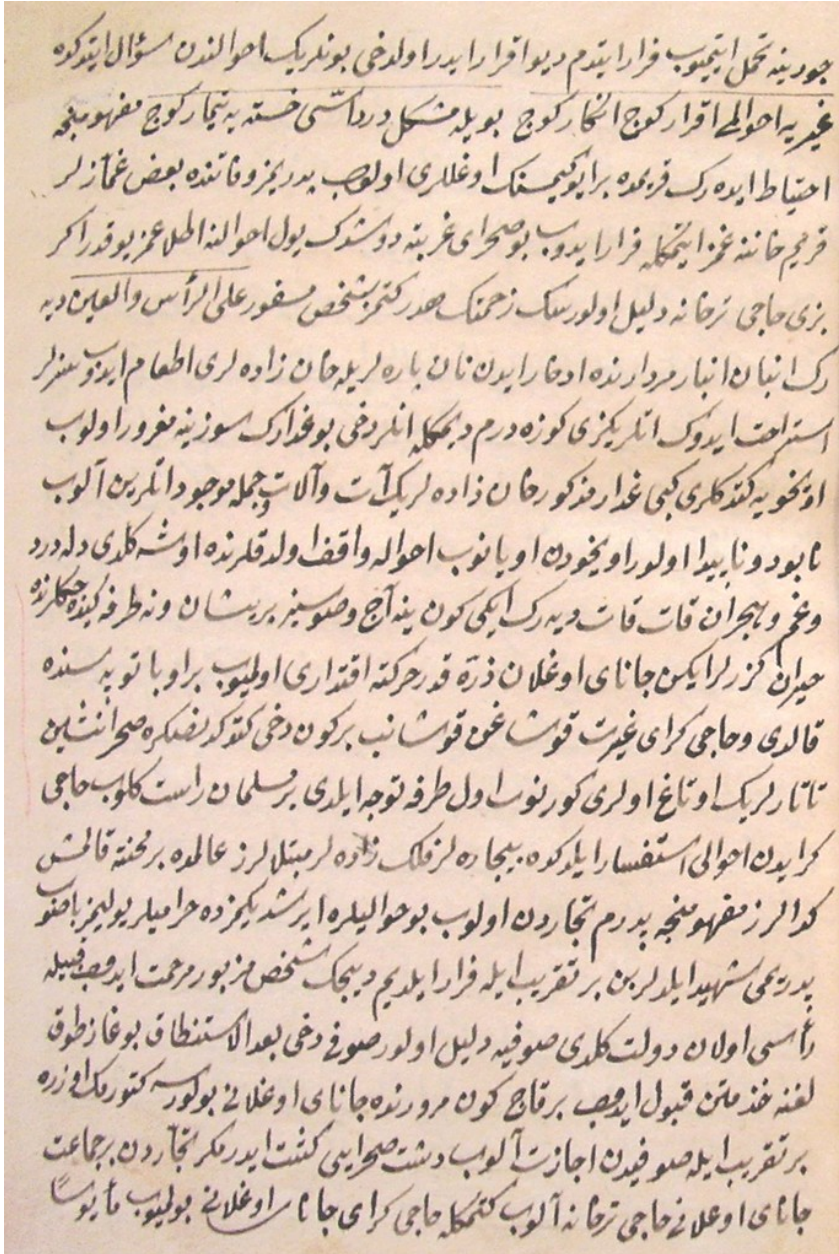 جورينه تحمل ايتميوب فرار ايتدم ديو اقرار ايدر اولدخى بونلريك احوالندن سؤال ايتدكده
غيريه احوالى اقرار كوج انكار كوج بويله مشكل درد آسمى خسته يه تيمار كوج مفهومنجه
احتياط ايده رك قريمده بر ايو كيمسنك اوغللرى اولوب پدريمز وفاتنده بعض غمازلر
قريم خاننه غمز ايتمكله فرار ايدوب بو صحراى غربته دوشدك يول احوالنه اطلاعمز يوقدر اكر
بزى حاجى ترخانه دليل اولورسك زحمتك هدر كتمز شخص مسفور على الرأس والعين ديه
رك انبان انبار مردارنده ادخار ايدن نان پاره لريله خان زاده لرى اطعام ايدوب سزلر
استراحت ايدوك اتلريكزى كوزه درم ديمكله انلر دخى بو غدارك سوزينه مغرور اولوب
اويخويه كتدكلرى كبى غدار مذكور خان زاده لريك آت وآلات وجمله موجود اتلرين آلوب
نابود و ناپيدا اولور اويخودن اويانوب احواله واقف اولدقلرنده اوشه كلدى دله درد
وغم وهجران قات قات ديه رك ايكى كون ينه آج وصوسز پريشان ونه طرفه كيده جكلرنده
حيران كزرلر ايكن جاناى اوغلان ذرة قدر حركته اقتدارى اولميوب بر اوبا توپه سنده
قالدى وحاجى كراى غيرت قوشاغن قوشانب بر كون دخى كتدكدنصكره صحرانشين
تاتارلريك اوتاغ اولرى كورنوب اول طرفه توجه ايلدى بر مسلمان راست كلوب حاجى
كرايدن احوالى استفسار ايلدكده بيچاره لرز فلك زده لر مبتلالرز عالمده بر محنته قالمش
كدالرز مفهومنجه پدرم تجاردن اولوب بو حواليلره ايرشديكمزده حراميلر يوليمز باصوب
پدريمى شهيد ايلديلر بن بر تقريب ايله فرار ايلديم ديجك شخص مزبور مرحمت ايدوب قبيله
رأسى اولان دولت كلدى صوفيه دليل اولور صوفى دخى بعد الاستنطاق بوغاز طوق
لغنه خذمتن قبول ايدوب بر قاج كون مرورنده جاناى اوغلانى بولورسه كتورمك اوزره
بر تقريب ايله صوفيدن اجازت آلوب دشت صحرايى كشت ايدر مكر تجاردن بر جماعت
جاناى اوغلانى حاجى ترخانه آلوب كتمكله حاجى كراى جاناى اوغلانى بولميوب مأيوساً